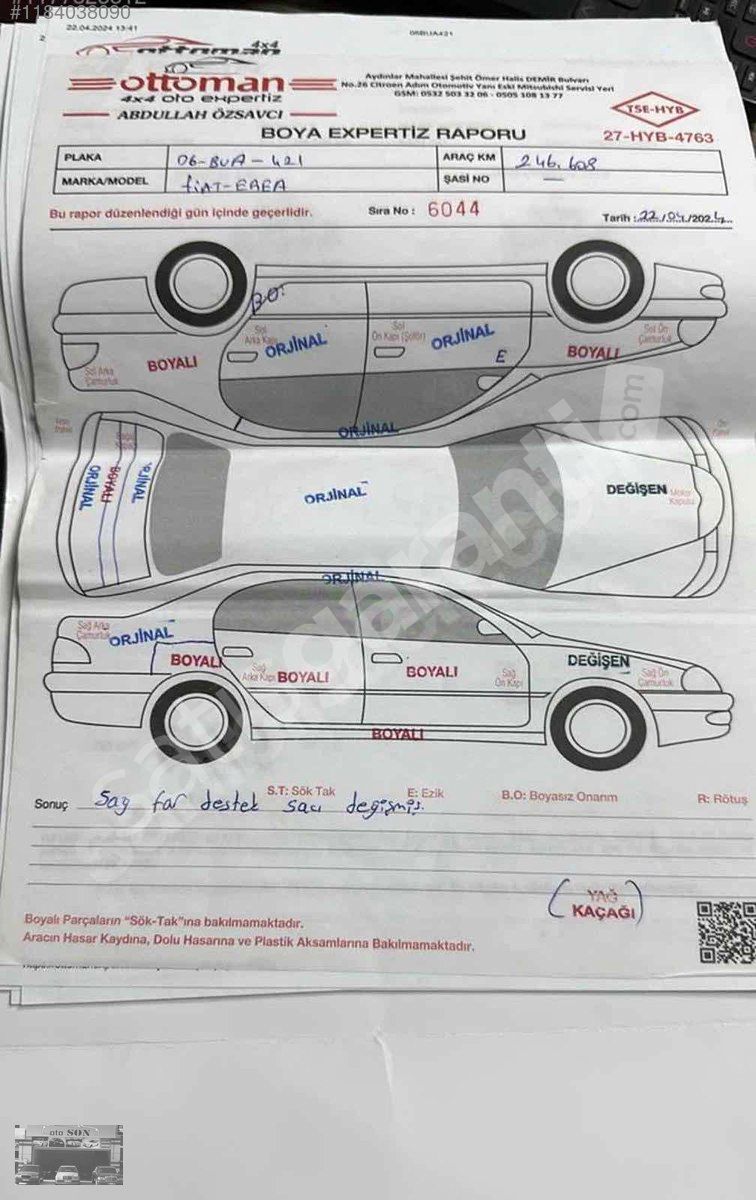 #1184038090
22.04.2024 13:41
06BUA421
ottoman 4x4
ottoman
4x4 oto expertiz
ABDULLAH ÖZSAVCI
Aydınlar Mahallesi Şehit Ömer Halis DEMİR Bulvarı
No.26 Citroen Adım Otomotiv Yanı Eski Mitsubishi Servisi Yeri
GSM: 0532 503 32 06 - 0505 108 13 77
TSE-HYB
27-HYB-4763
BOYA EXPERTİZ RAPORU
PLAKA 06-BUA-421 ARAÇ KM 246.608
MARKA/MODEL FİAT-EGEA ŞASİ NO —
Bu rapor düzenlendiği gün içinde geçerlidir. Sıra No : 6044 Tarih : 22/04/2024
B.O:
Sol Arka Kapı ORJİNAL
Sol Ön Kapı (Şoför) ORJİNAL
Sol Ön Çamurluk
BOYALI
E
BOYALI
Sol Arka Çamurluk
ORJİNAL
ORJİNAL
BOYALI
ORJİNAL
ORJİNAL
DEĞİŞEN
Motor Kaputu
ORJİNAL
Sağ Arka Çamurluk
ORJİNAL
BOYALI
Sağ Arka Kapı BOYALI
BOYALI
Sağ Ön Kapı
DEĞİŞEN
Sağ Ön Çamurluk
BOYALI
S.T: Sök Tak E: Ezik B.O: Boyasız Onarım R: Rötuş
Sonuç Sağ far destek sacı değişmiş.
(YAĞ
KAÇAĞI)
Boyalı Parçaların "Sök-Tak"ına bakılmamaktadır.
Aracın Hasar Kaydına, Dolu Hasarına ve Plastik Aksamlarına Bakılmamaktadır.
sarı garanti.com
oto SON